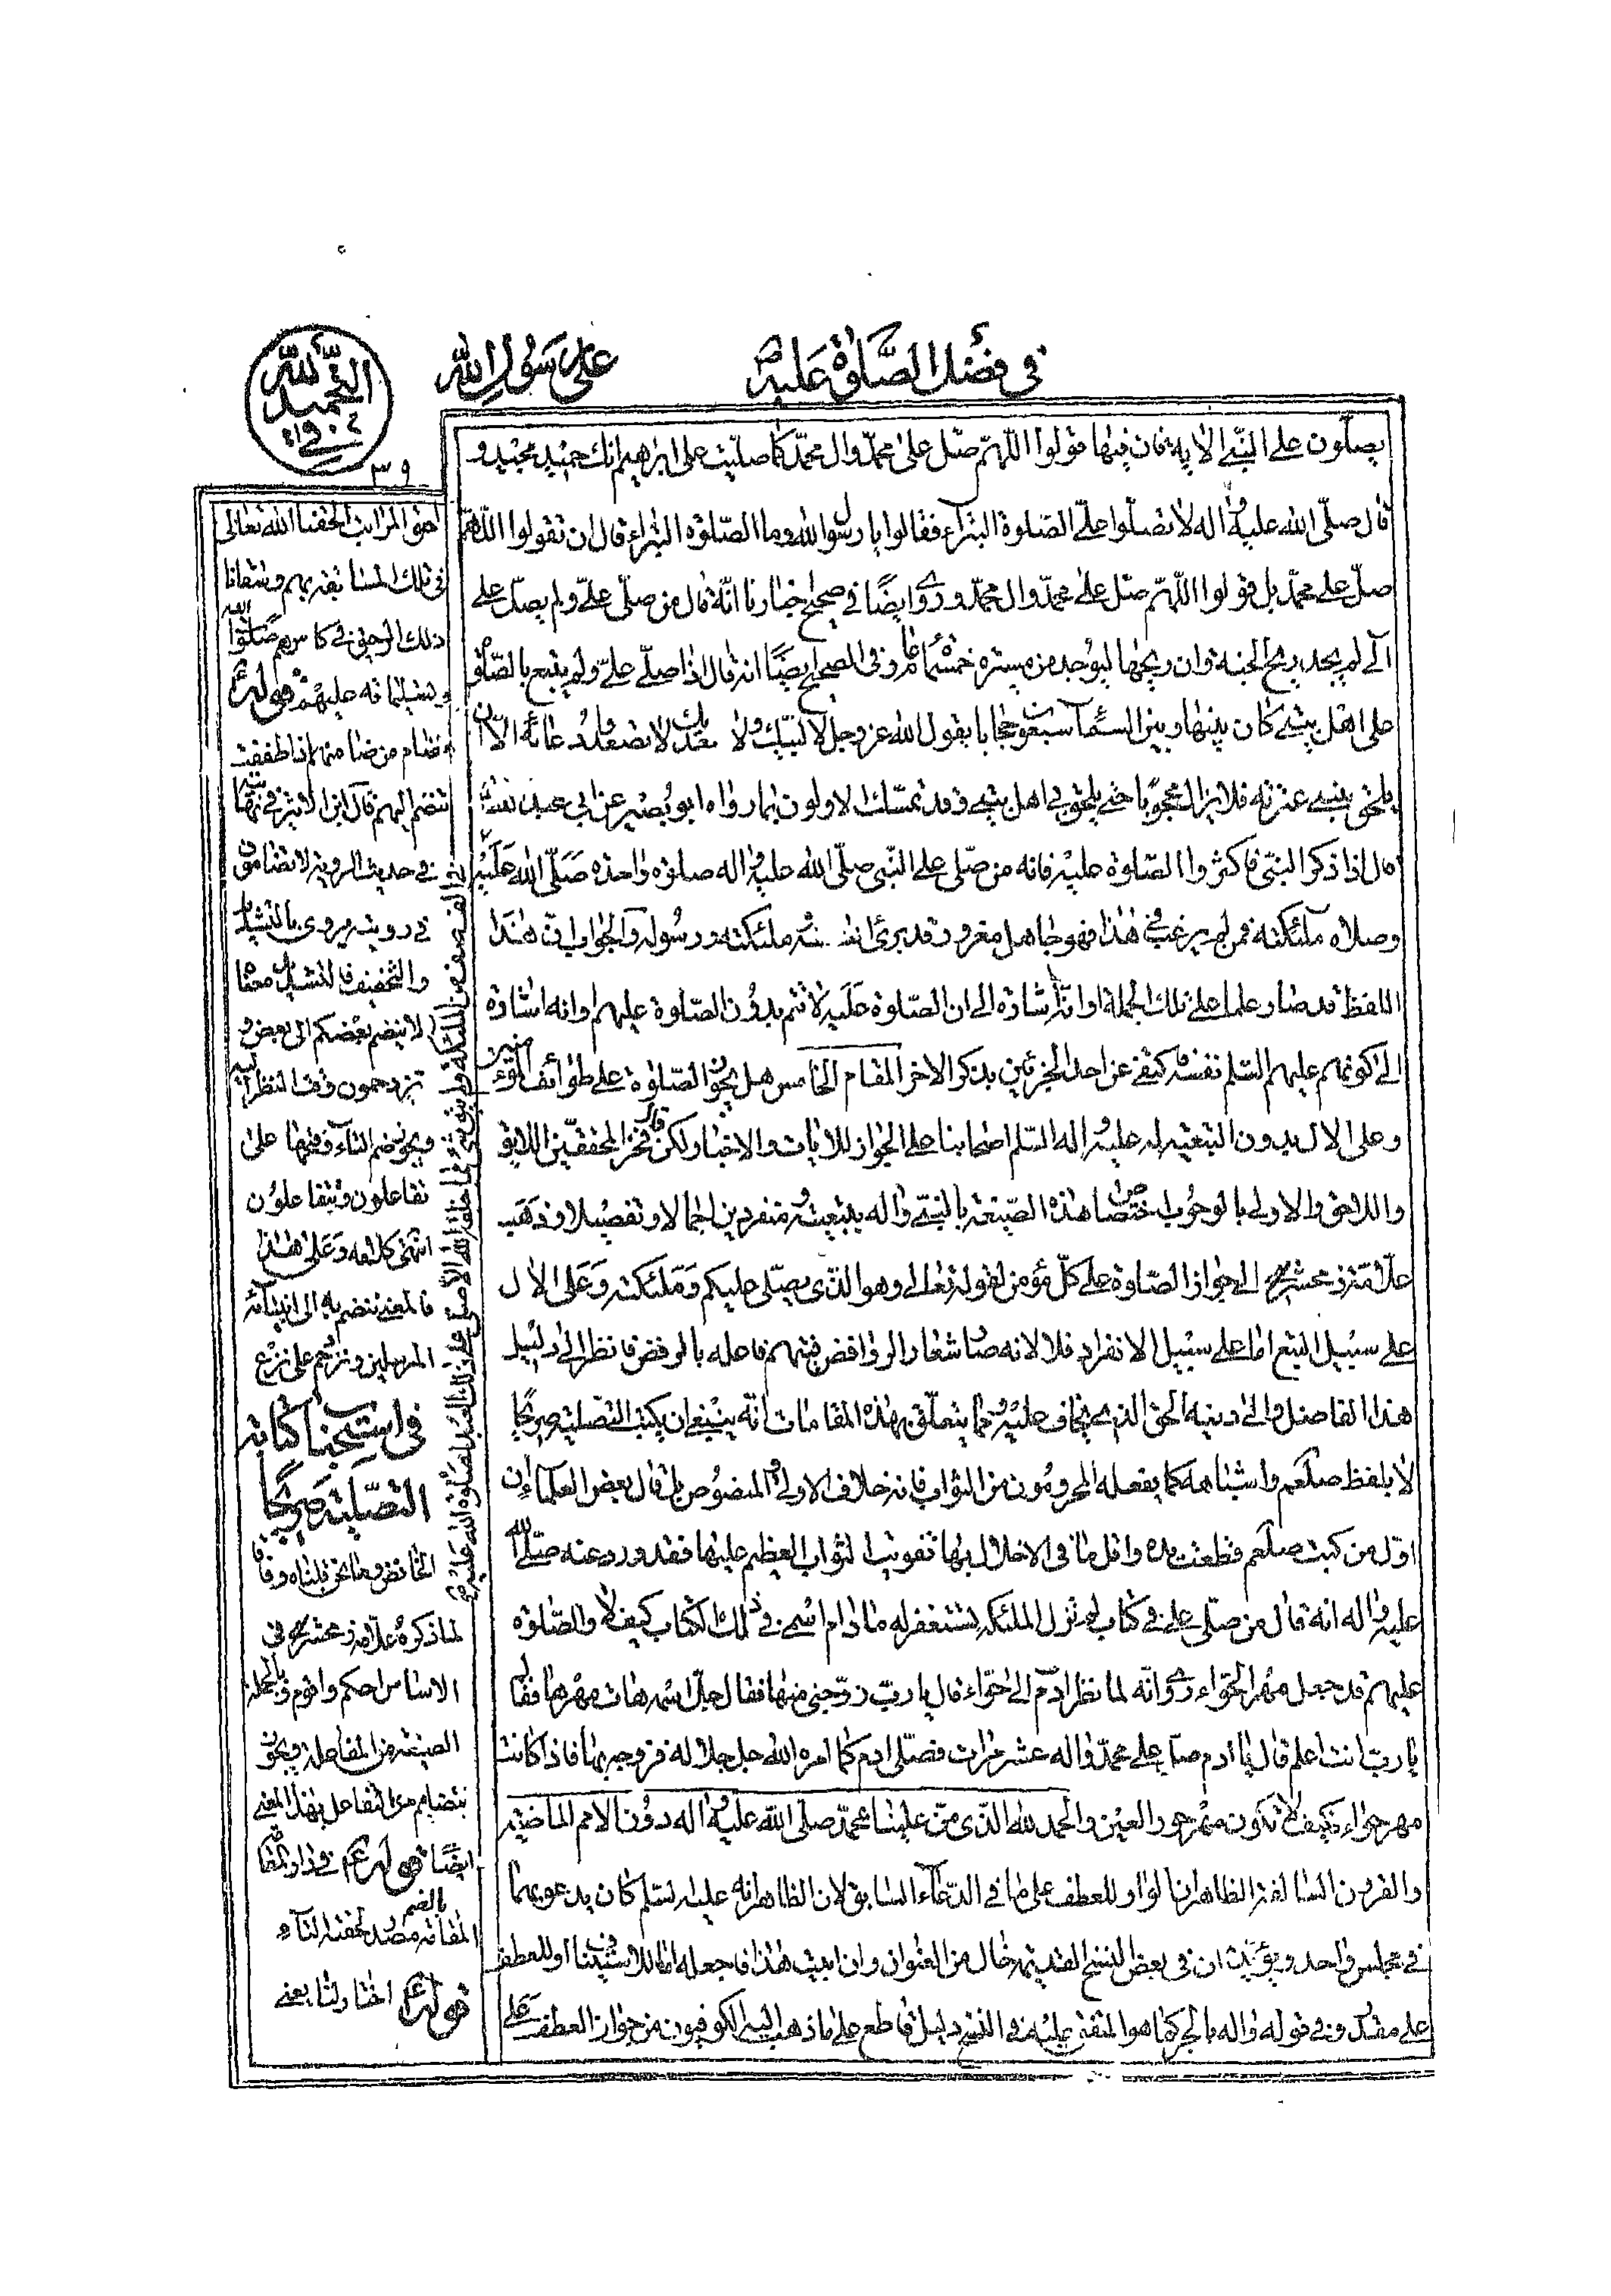 في فضل الصلوة عليه
على رسول الله
التحميد لله
٣٩
يصلون على النبي الاية فان فيها قولوا اللهم صل على محمد وال محمد كما صليت على ابرهيم انك حميد مجيد و
قال صلى الله عليه واله لا تصلوا على الصلوة البتراء فقالوا يا رسول الله وما الصلوة البتراء قال ان تقولوا اللهم
صل على محمد بل قولوا اللهم صل على محمد وال محمد وروى ايضا في صحيح اخبارنا انه قال من صلى على ولم يصل على
آلي لم يجد ريح الجنة وان ريحها ليوجد من مسيرة خمسمائة عام وفي الصحيح ايضا انه قال اذا صلى على ولم يتبع بالصلوة
على اهل بيتي كان بينها وبين السماء سبعون حجابا يقول الله عز وجل لا لبيك ولا سعديك لا تصعدوا دعائه الا ان
يلحق بنبيي عترته فلا يزال محجوبا حتى يلحق بي اهل بيتي وقد تمسك الاولون بما رواه ابو بصير عن ابي عبد الله
قال اذا ذكر النبي فاكثروا الصلوة عليه فانه من صلى على النبي صلى الله عليه واله صلوة واحدة صلى الله عليه
وصلاه ملئكته فمن لم يرغب في هذا فهو جاهل مغرور قد برئ الله منه ملئكته ورسوله والجواب ان هذا
اللفظ قد صار علما على تلك الجملة او انه اشارة الى ان الصلوة عليه لا تتم بدون الصلوة عليهم وانه اشارة
الى كونهم عليهم السلم نفسه كتفى عن احد الجزئين بذكر الاخر المقام الخامس هل يجوز الصلوة على طوائف المؤمنين
وعلى الال بدون التبعية له عليه واله السلم اصحابنا على الجواز للايات والاخبار ولكن قال فخر المحققين اللايق
واللاحق والاولى بالوجوب اختصاص هذه الصيغة بالنبي واله بتبعيته ومنفردين اجمالا وتفصيلا وذهب
علامة زمخشر الى جواز الصلوة على كل مؤمن لقوله تعالى وهو الذي يصلى عليكم وملئكته وعلى الال
على سبيل التبع اما على سبيل الانفراد فلا لانه صار شعار الروافض فيتهم فاعله بالرفض فانظر الى دليل
هذا الفاضل والى دينه الحق الذي يخاف عليه ومما يتعلق بهذه المقامات انه ينبغي ان يكتب التصلية صريحا
لا بلفظ صلعم واشباهه كما يفعله المحرومون من الثواب فانه خلاف الاولى والمنصوص بل قال بعض العلماء ان
اول من كتب صلعم قطعت يده واقل ما في الاخلال بها تفويت الثواب العظيم عليها فقد ورد عنه صلى الله
عليه واله انه قال من صلى على في كتاب لم تزل الملئكة تستغفر له ما دام اسمي في ذلك الكتاب كيف لا والصلوة
عليهم قد جعل مهر الحواء روى انه لما نظر ادم الى حواء قال يا رب زوجني منها فقال جل اسمه هات مهرها فقال
يا رب انت اعلم قال يا ادم صل على محمد واله عشر مرات فصلى ادم كما امره الله جل جلاله فزوجه بها فاذا كانت
مهر حواء فكيف لا تكون مهر حور العين والحمد لله الذي من علينا محمد صلى الله عليه واله دون الامم الماضية
والقرون السالفة الظاهر ان الواو للعطف على ما في الدعاء السابق لان الظاهر انه عليه لسلم كان يدعو بهما
في مجلس واحد ويؤيد ان في بعض النسخ القديمة خال من العنوان وان ابيت هذا فاجعله اما للاستيناف او للعطف
على مقدر وفي قوله واله بالجر كما هو المتفق عليه في النسخ دليل قاطع على ما ذهب اليه الكوفيون من جواز العطف على
احق المراتب الحقنا الله تعالى
في تلك المسابقة بهم وسقانا
ذلك الرحيق في كاسهم صلوات الله
وتسليماته عليهم قوله ع
تضم اليهم قال ابن الاثير في نهايته
في حديث الروية لا تضامون
في رويته يروى بالتشديد
والتخفيف فالتشديد معناه
لا ينضم بعضكم الى بعض و
تزدحمون وقت النظر اليه
ويجوز ضم التاء وفتحها على
تفاعلون وتتفاعلون
انتهى كلامه وعلى هذا
فالمعنى تنضم به الى انبيائه
المرسلين ونزحم على نزع
في استحباب كتابة
التصلية صريحا
الخافض وما نحن قلناه وفاقا
لما ذكره علامة زمخشر في
الاساس احكم واقوم وبالجملة
الصيغة من المفاعلة ويجوز
بتضام من التفاعل بهذا المعنى
ايضا قوله ع في دار المقامة
المقامة بالضم مصدر لحقته التاء
قوله ع اختار لنا يعني